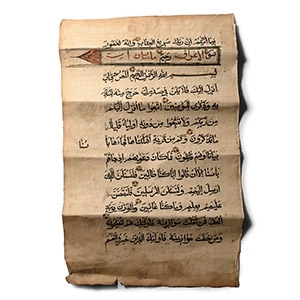 فيما اتاكم ان ربك سريع العقاب وانه لغفور
سورة الاعراف وهي مائتان
بسم الله الرحمن الرحيم المص كتاب
انزل اليك فلا يكن في صدرك حرج منه لتنذر
به وذكرى للمؤمنين اتبعوا ما انزل اليكم
من ربكم ولا تتبعوا من دونه اولياء قليلا
ما تذكرون وكم من قرية اهلكناها فجاءها
بياتا او هم قائلون فما كان دعويهم اذ جاءهم
باسنا الا ان قالوا انا كنا ظالمين فلنسئلن الذين
ارسل اليهم ولنسئلن المرسلين فلنقصن
عليهم بعلم وما كنا غائبين والوزن يومئذ
الحق فمن ثقلت موازينه فاولئك هم
ومن خفت موازينه فاولئك الذين خسروا انفسهم